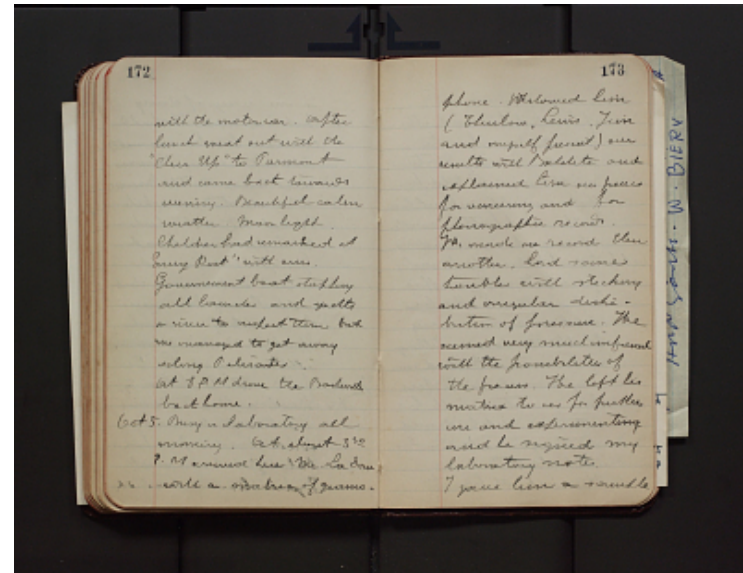 172
with the motorcar. After
lunch went out with the
"Chas Up" to Piermont
and came back towards
evening. Beautiful calm
weather. Moon light.
Children had remained at
"Snug Rock" with
Government boat stopping
all launches and yachts
on river to inspect them but
we managed to get away
along Palisades.
At 8 P.M drove the
back home.
Oct 5. Busy in laboratory all
morning. At about 3
P.M arrived here Mr.
with a matrix of gramo-
173
phone. Showed him
(Thurlow, Lewis, Jim
and myself present) our
results with Bakelite and
explained him our process
for and for
phonographic records.
We made one record then
another. Had some
troubles with sticking
and irregular distri-
bution of pressure. He
seemed very much impressed
with the possibilities of
the process. He left his
matrix to us for further
use and experimenting
and he signed my
laboratory note.
I gave him a sample
W. BIERY